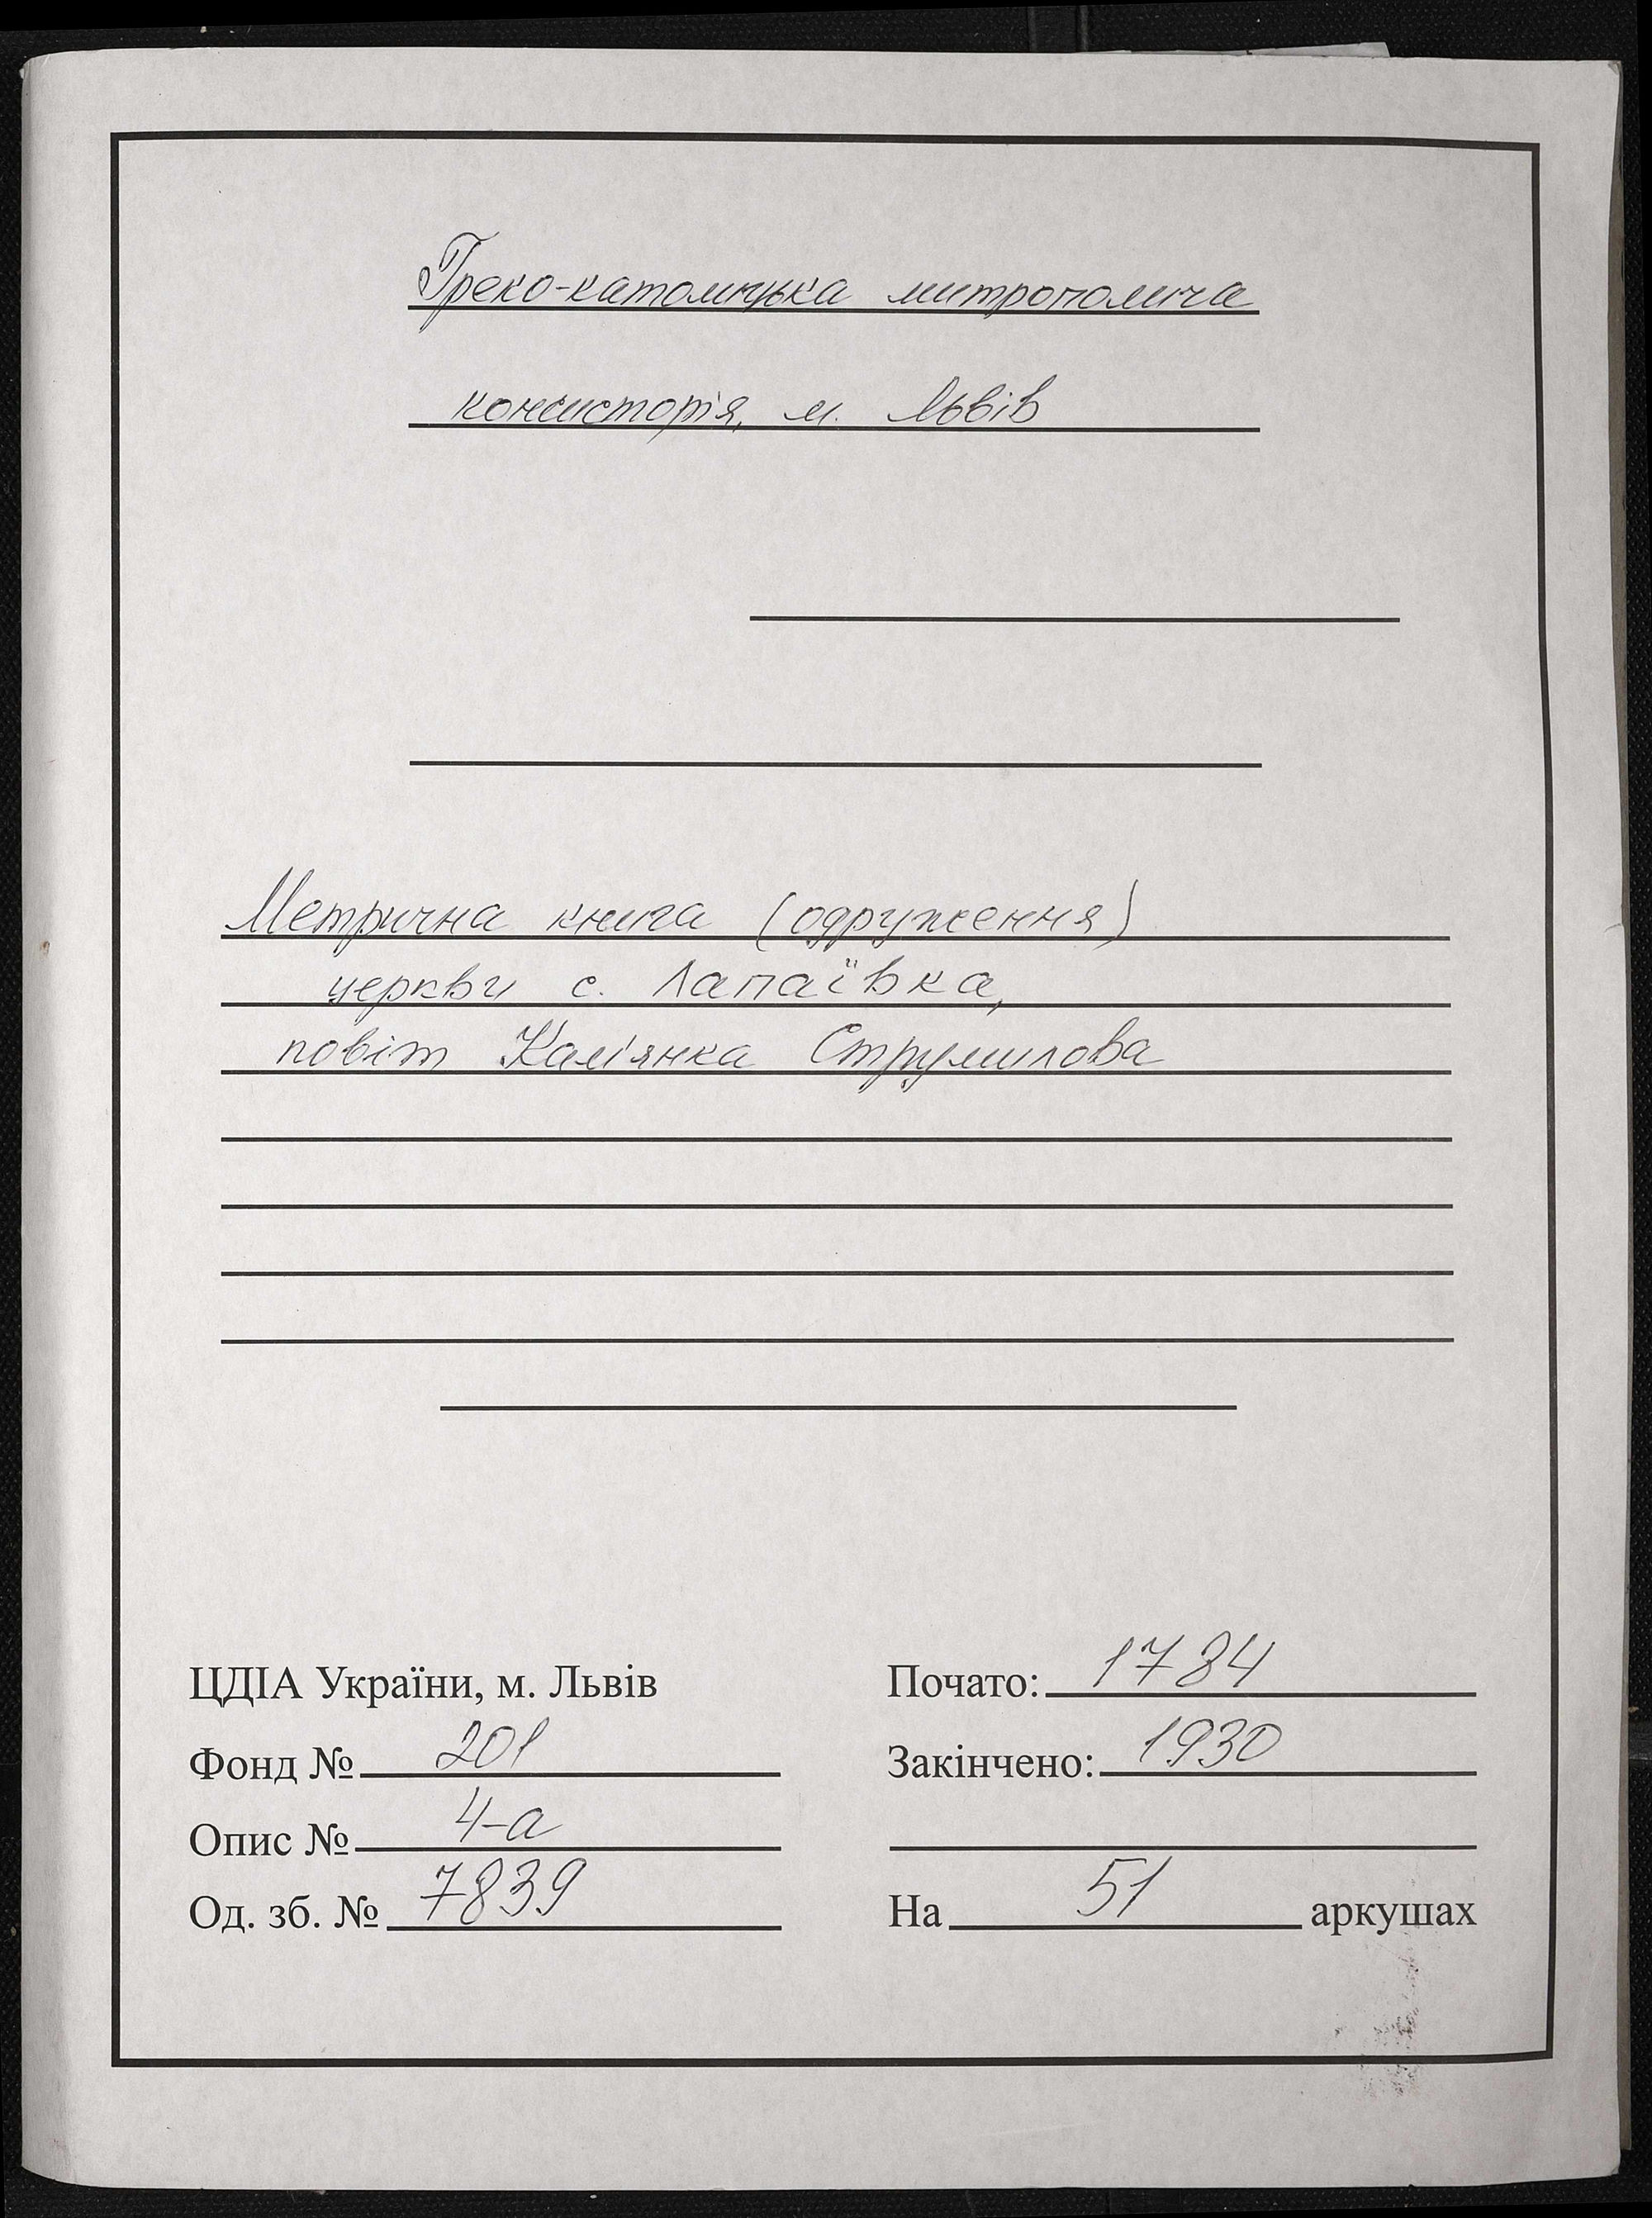 Греко-католицька митрополича
консисторія, м. Львів
Метрична книга (одруження)
церкви с. Лапаївка,
повіт Кам'янка Струмилова
ЦДІА України, м. Львів
Почато: 1784
Фонд № 201
Закінчено: 1930
Опис № 4-а
Од. зб. № 7839
На 51 аркушах